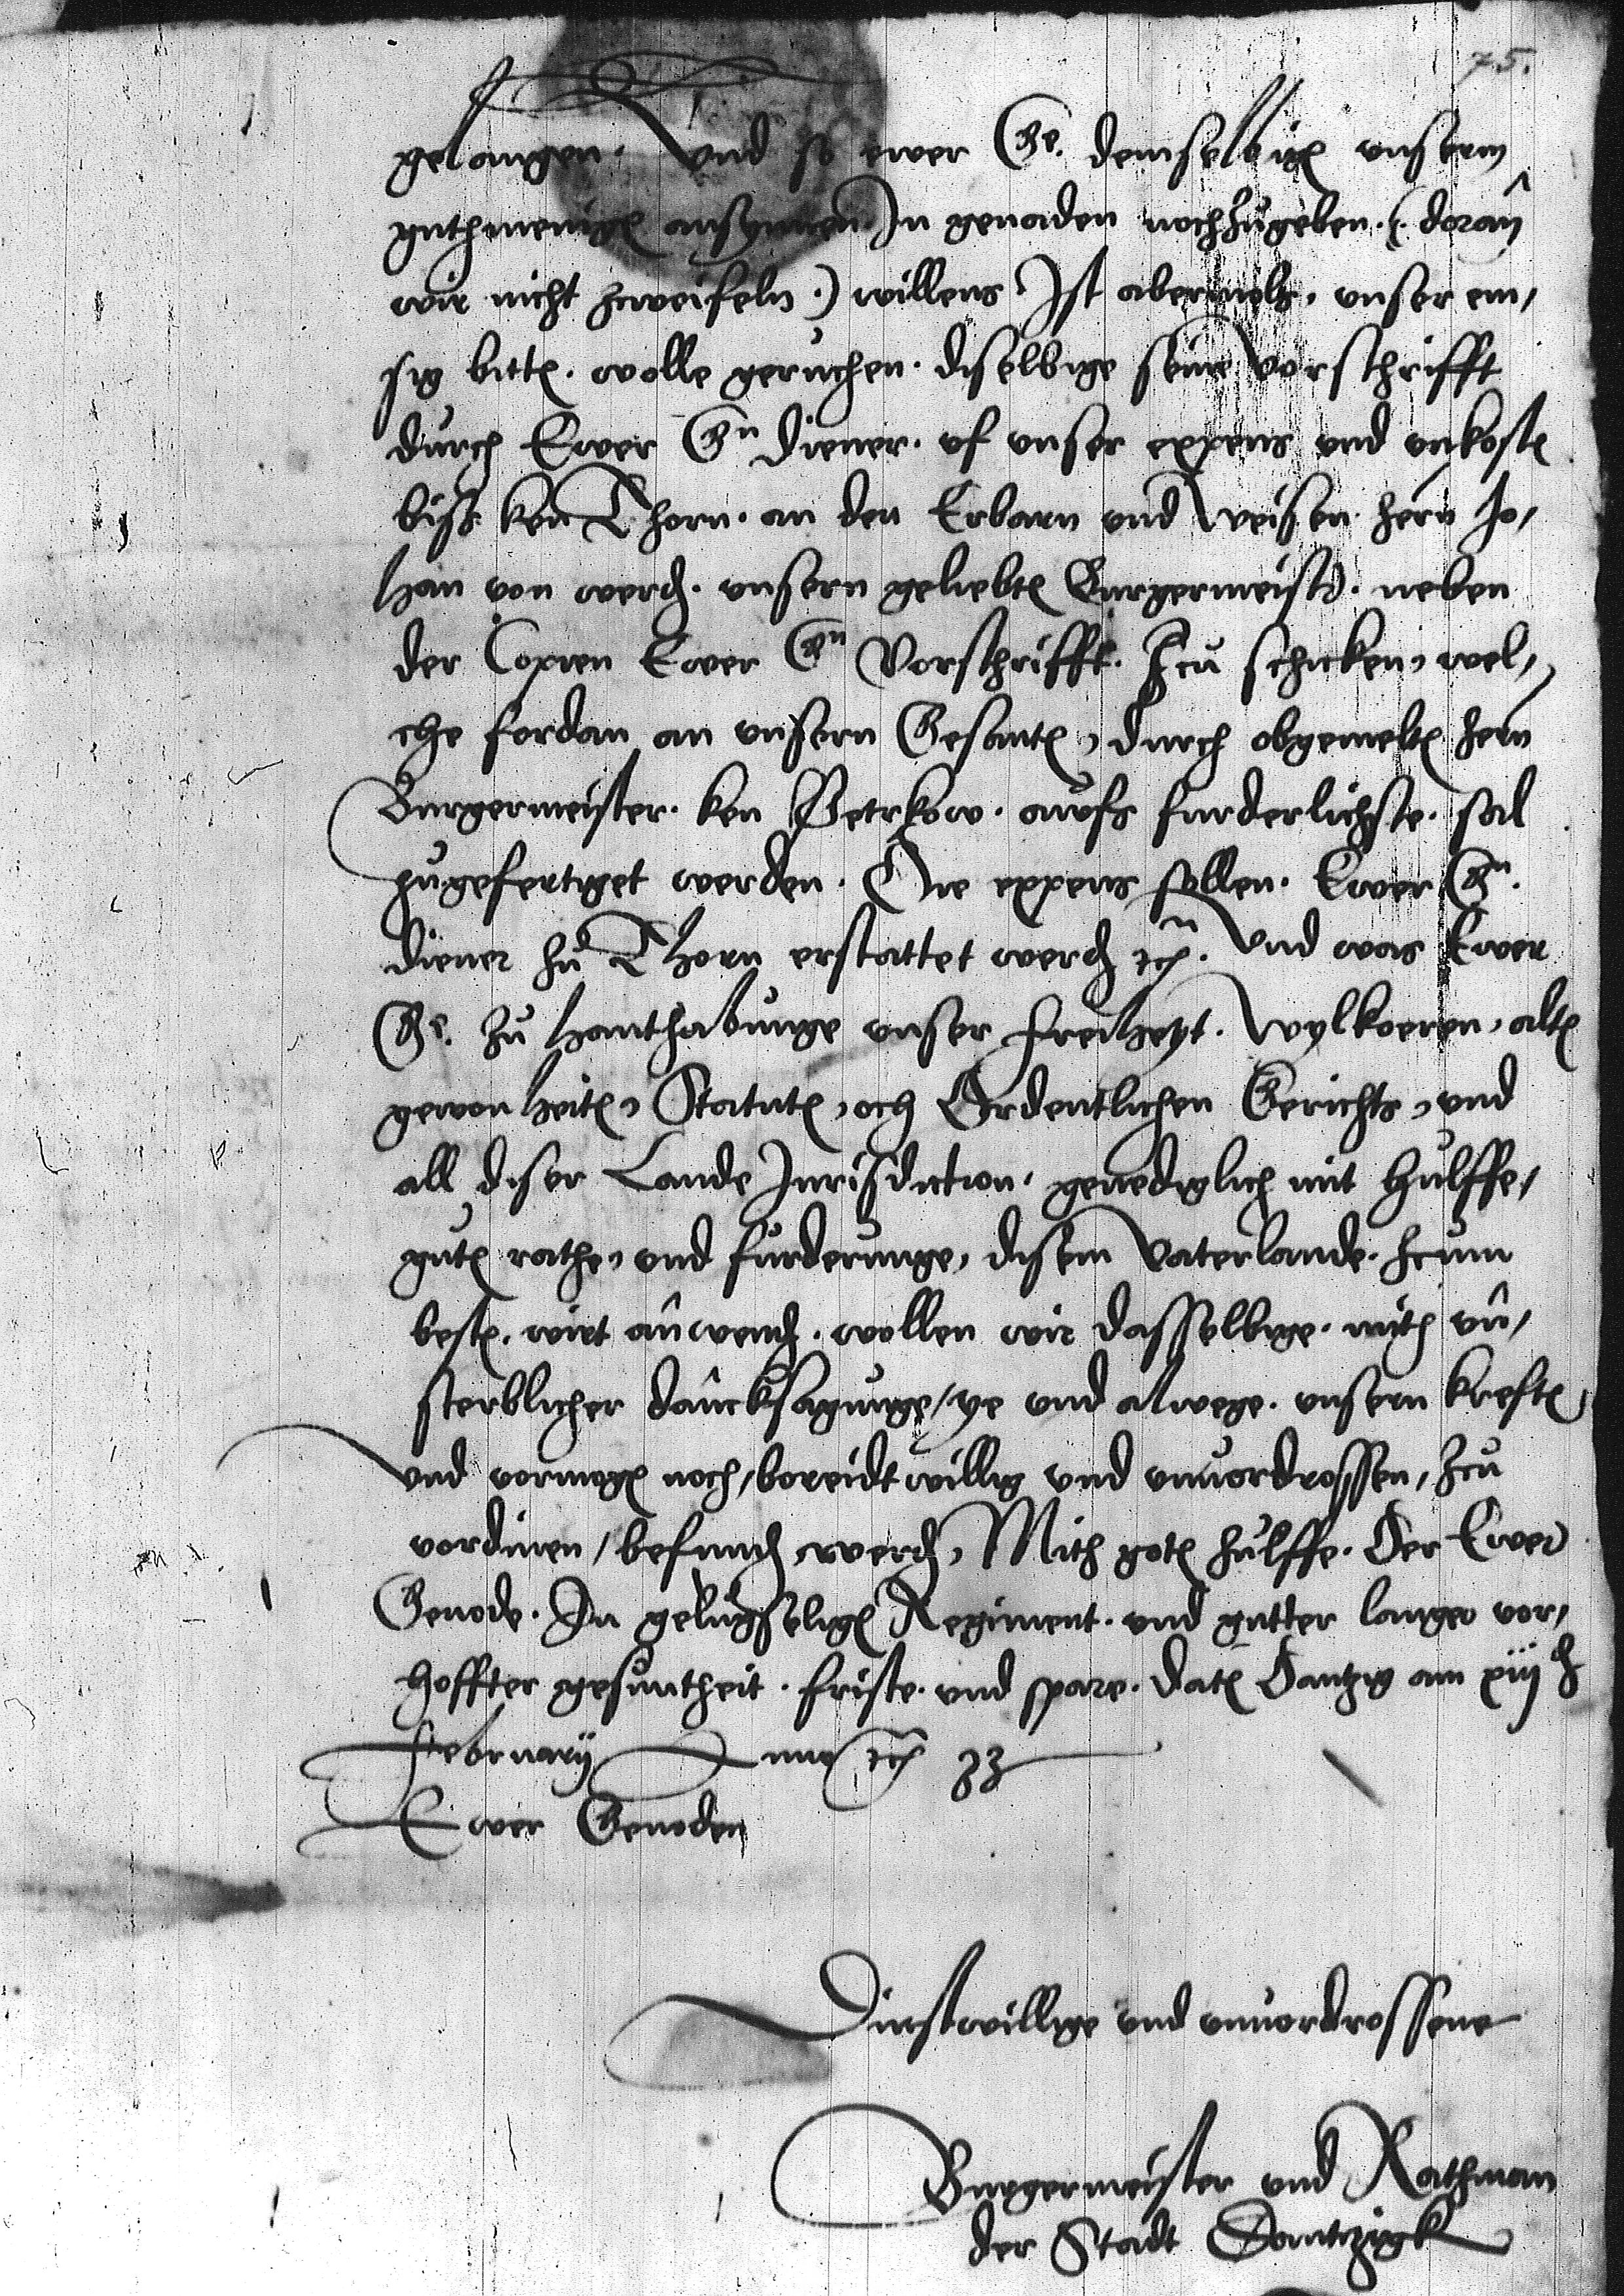 75.
gelangen. Und so ewer Ge. demselbigen unserm
guthmenigen ansynnen In genaden nochzugeben. (. doran
wir nicht zweifeln.) willens. Ist abermals. unser em,
sig bitten. wolle geruchen. diselbige seine vorschrifft
durch Ewer Gn diener. uf unser expens und unkosten
biss ken Thorn. an den Erbarn und Weisen. hern Jo,
han von werden. unsern geliebten Burgermeister. neben
der Copien Ewer Gn Vorschrifft. Zcu schicken, wel,
che fordan an unsern Gesanten, durch obgemelten hern
Burgermeister. ken Petrkow. aufs furderlichste. sal
zugefertiget werden. Die expens sollen. Ewer Gn.
diener zu Thorn erstattet werden etc. Und was Ewer
Ge. zu hanthabunge unser freiheyt. Wylkoeren, alten
gewonheiten, Statuten, och Ordentlichen Gerichts, und
all diser Lande Jurisdiction. genediglich mit hulffe,
guten rathe, und furderunge, disem Vaterlande. zcum
besten. wirt anwenden. wollen wir dasselbige. mith un,
sterblicher dancksagunge, ye und alwege. unsern kreften
und vormogen noch, bereidt willig und unvordrossen, zcu
vordinen, befunden werden, Mith gotes hulffe. Der Ewer
Genode. In gelugseligen Regiment. und gutter langer vor,
hoffter gesuntheit. friste. und spare. Daten Dantzig am xiij den
February Anno etc 33
Ewer Genoden
Dinstwillige und unvordrossene
Burgermeister und Rathman
der Stadt Dantzigk